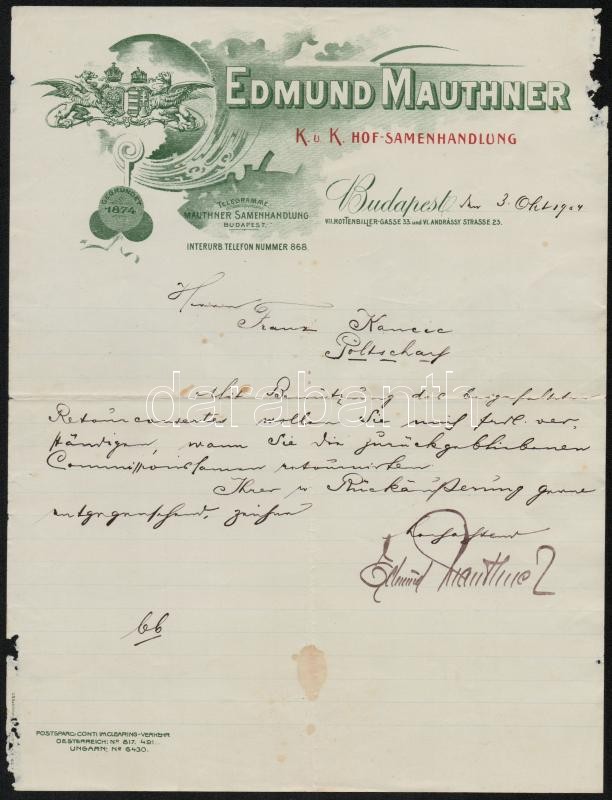 EDMUND MAUTHNER
K. u. K. HOF-SAMENHANDLUNG
GEGRÜNDET
1874
TELEGRAMME:
MAUTHNER SAMENHANDLUNG
BUDAPEST.
INTERURB. TELEFON NUMMER 868.
Budapest, den 3. Okt 1904
VII. ROTTENBILLER-GASSE 33. und VI. ANDRÁSSY STRASSE 23.
Herrn
Franz
Poltschach
Mit Benützung des beigefalteten
Retourcouvertes wollen Sie uns frdl. ver-
ständigen, wann Sie die zurückgebliebenen
Commissionssamen retournirten.
Ihrer w. Rückäußerung gerne
entgegensehend, zeichne
Hochachtend
Edmund Mauthner
66
darabanth
POSTSPARC.-CONTI IM CLEARING-VERKEHR
OESTERREICH: No 817. 491.
UNGARN: No 6430.